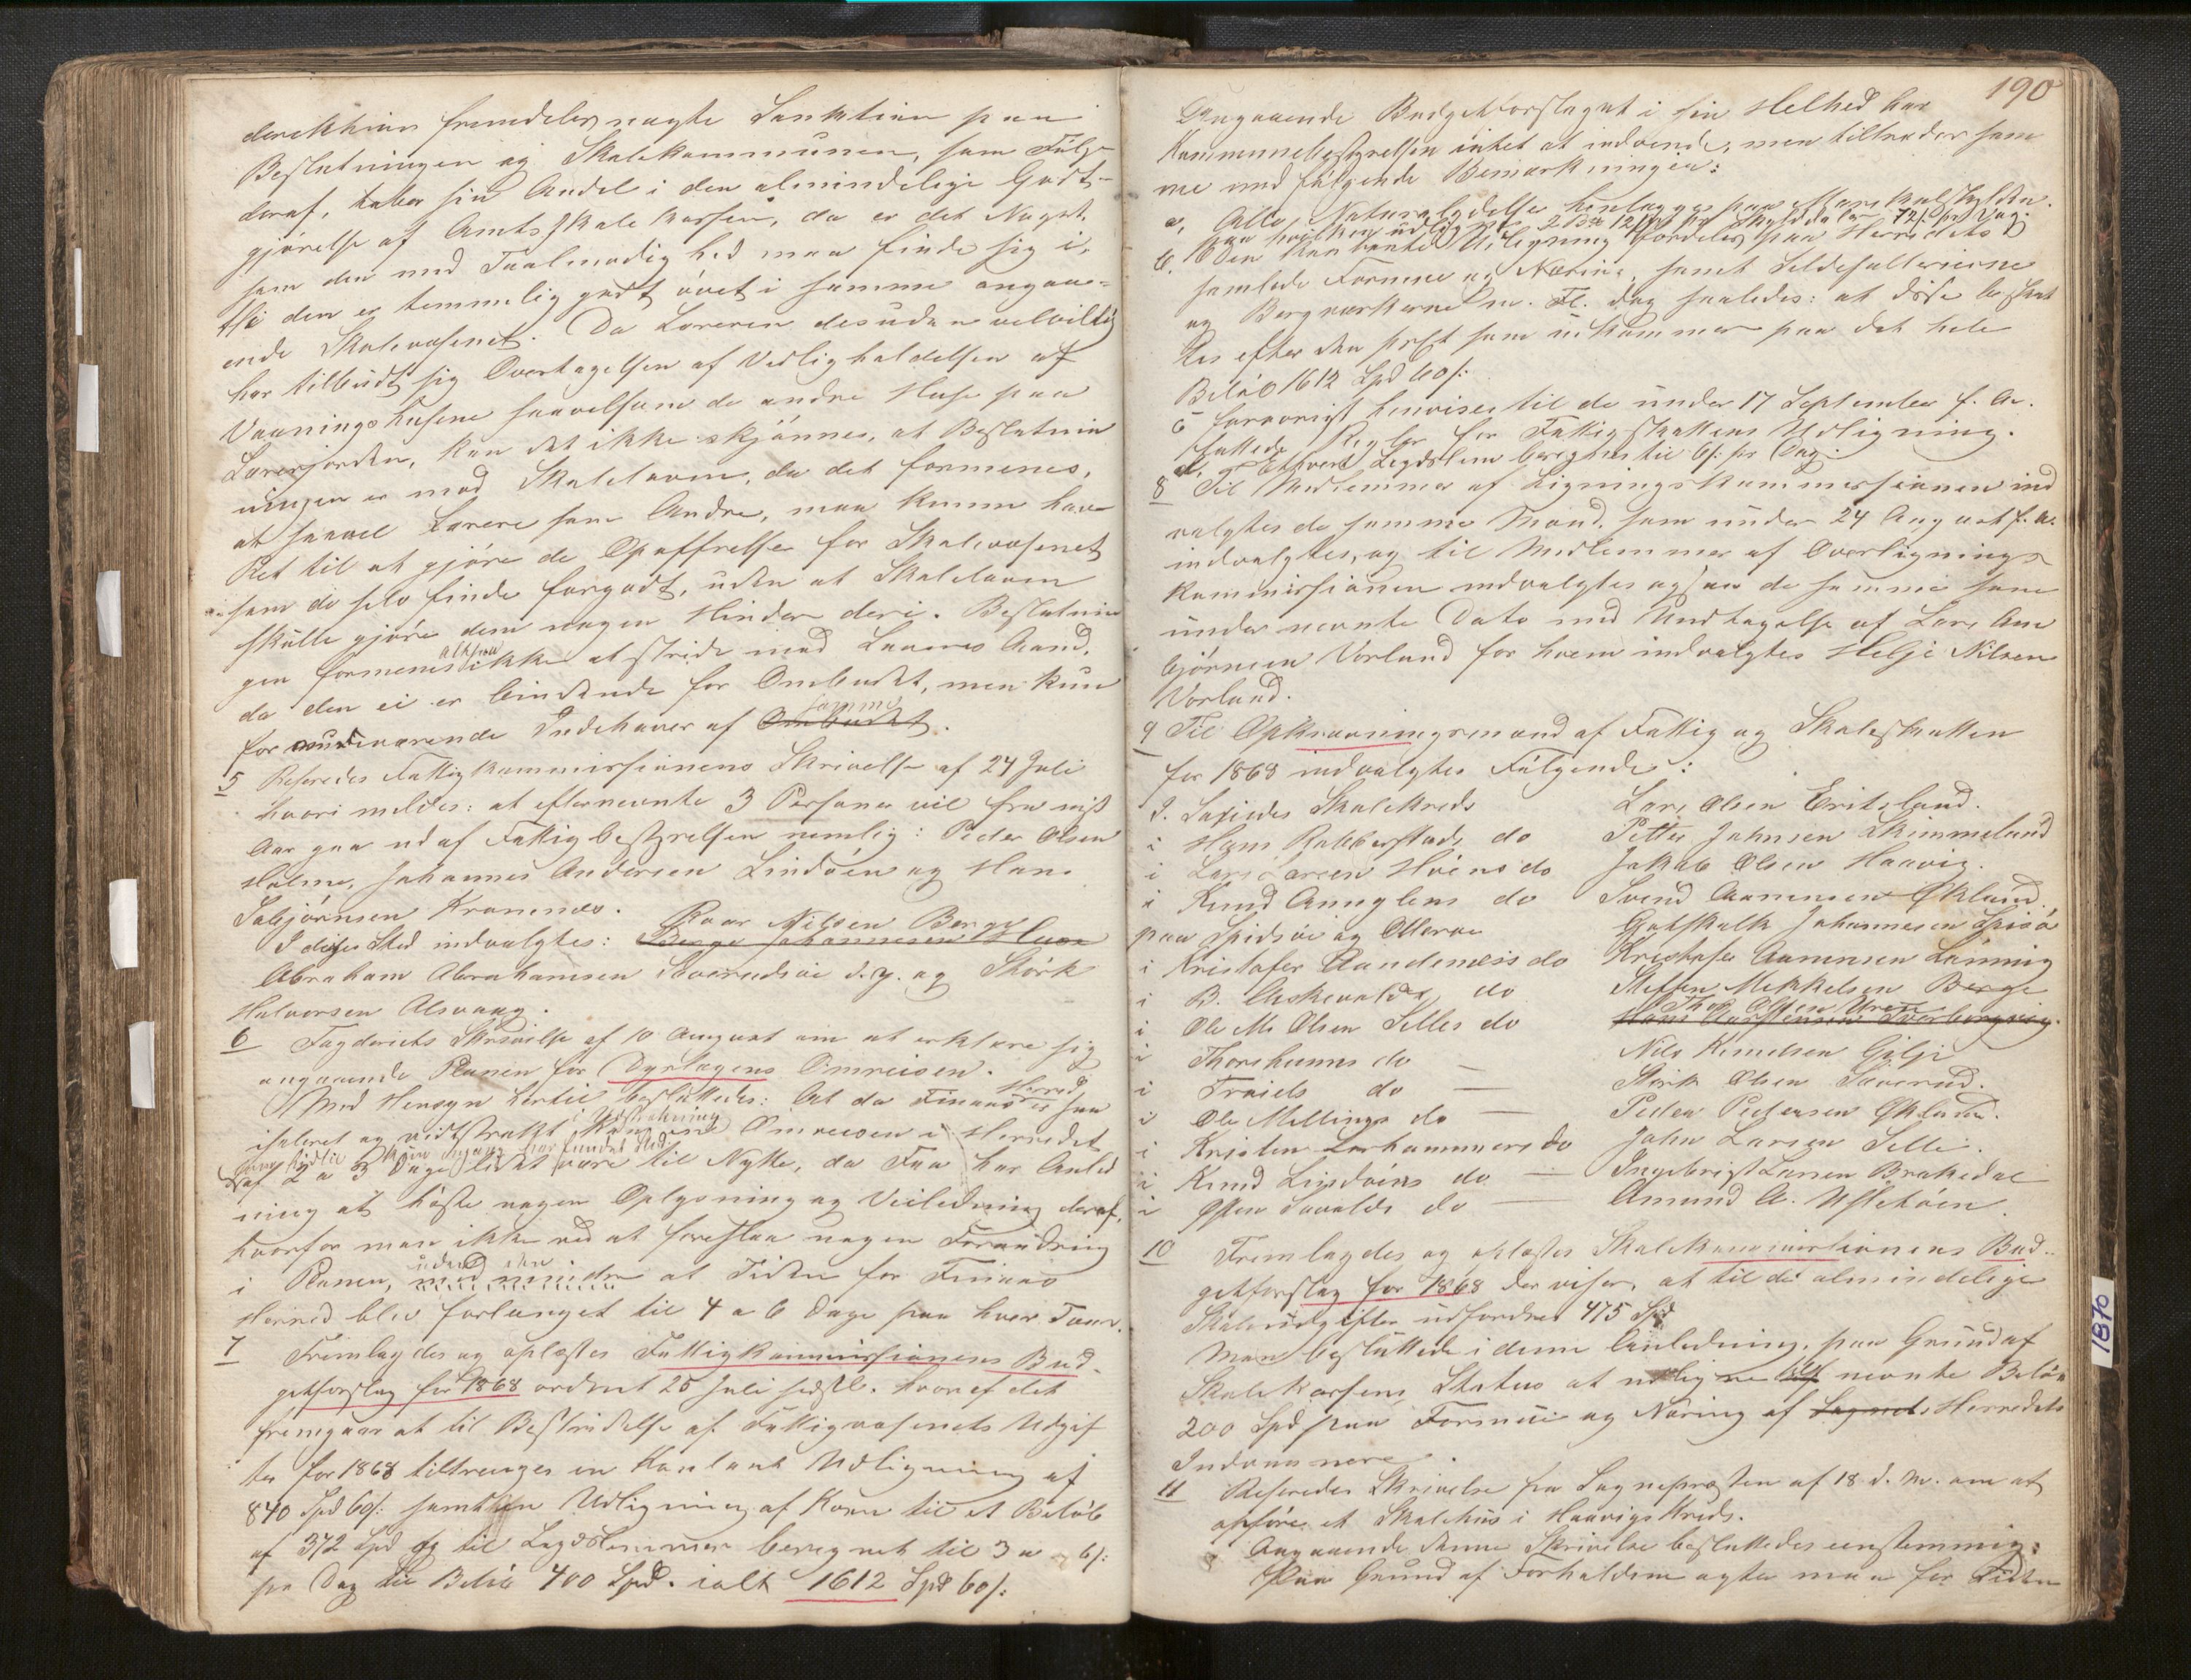 derektion fremdeles nægte Sanktion paa
Beslutningen og Skolekommunen, som Følge
deraf, taber sin Andel i den almindelige Godt-
gjørelse af Amtsskolekassen, da er det Noget
som den med Taalmodighed maa finde sig i,
thi den er temmelig godt øvet i samme angaa-
ende Skolevæsenet. Da Læreren desuden velvillig
har tilbudt sig Overtagelsen af Vedligholdelsen af
Vaaningshusene saavelsom de andre Huse paa
Lærerjorden, kan det ikke skjønnes, at Beslutnin
ningen er mod Skoleloven, da det formenes,
at saavel Lærere som Andre, maa kunne have
Ret til at gjøre de Opoffrelser for Skolevæsenet
som de selv finde forgodt, uden at Skoleloven
skulle gjøre dem nogen Hinder deri. Beslutnin
gen formenes altsaa ikke at stride mod Lovens Aand,
da den ei er bindende for Ombudet, men kun
for nuværende Indehaver af Ombudet samme.
5 Refererdes Fattigkommissionens Skrivelse af 24 Juli
hvori meldes: at efternevnte 3 Personer vil fra nist
Aar gaa ud af Fattigbestyrelsen nemlig: Peder Olsen
Holme, Johannes Andersen Lindøen og Hans
Asbjørnsen Kronenes.
I disses Sted indvalgtes: Roar Nilsen Berge
Abraham Abrahamsen Søvereidsøie d.y. og Størk
Halvorsen Alsvaag.
6 Fogderiets Skrivelse af 10 August om at erklære sig
angaaende Planen for Dyrlægens Omreisen.
Med Hensyn hertil besluttedes: At da Finaas Herred er saa
isoleret og vidtstrakt i Udstrekning kan en Omreisen i Herredet
af 2 a 3 Dage lidet være til Nytte, da Faa har Anled
ning at høste nogen Oplysning og Veiledning deraf,
hvorfor man ikke ved at foreslaa nogen Forandring
i Planen, uden den med mindre at Tiden for Finaas
Herred blev forlænget til 4 a 6 Dage paa hver Tour.
7 Fremlagdes og oplæstes Fattigkommissionens Bud-
getforslag for 1868 ordnet 25 Juli sidstl. hvoraf det
fremgaar at til Bestridelse af Fattigvæsenets Udgif
ter for 1868 tiltrænges en Kontant Udligning af
840 Spd 60 s: samt en Udligning af Korn til et Beløb
af 372 Spd og til Lægdslemmer beregnet til 3 a 6 s:
pr Dag til Beløb 400 Spd. ialt 1612 Spd 60 s:
190
Angaaende Budgetforslaget i sin Helhed har
Kommunebestyrelsen intet at indvende, men tiltræder sam
me med følgende Bemærkninger:
a, Alle Naturalydelse henlægges paa Matrikulskylden
b. Den kontante Udligning fordeles paa Herredets
samlede Formue og Næring, samt Sildesalterierne
og Bergverkerne m. Fl. dog saaledes: at disse beskat
tes efter den profit som udkommer paa det hele
Beløb 1612 Spd 60 s:
c forøvrigt henvises til de under 17 September f. A.
fattede Regler for Fattigskattens Udligning.
d, Ethvert Legdslem beregnes til 6 s: pr Dag.
8 Til Medlemmer af Ligningskommissionen ind
valgtes de samme Mænd, som under 24 August f. A.
indvalgtes, og til Medlemmer af Overlignings
kommissionen indvalgtes ogsaa de samme som
under nevnte Dato med Undtagelse af Lars Am
bjørnsen Vorland for hvem indvalgtes Helje Nilsen
Vorland.
9 Til Opkrævningsmænd af Fattig og Skoleskatten
for 1868 indvalgtes Følgende:
I. Safindes Skolekreds Lars Olsen Eritsland.
i Hans Rabberstads do Petter Johnsen Skimmeland
i Lars Larsen Høiens do Jakob Olsen Haavig.
i Knud Aanuglens do Svend Aamunsen Økland.
paa Spidsøi og Olleroen Gotskalk Johannesen Spisø
i Kristofer Aandenæs's do Kristofer Aamunsen Lønning
i B. Eskevolds do Steffen Mikkelsen Berge
i Ole M. Olsen Selles do Thor Olsen Uren
i Thorshuuns do Nils Knudsen Gilje
i Fraiels do Størk Olsen Søvereid.
i Ole Mellings do Peder Pedersen Økland.
i Kristen Larhammers do John Larsen Selle.
i Knud Lindøens do Ingebrigt Larsen Brakedal
i Østen Savalds do Amund A. Ustehøen.
10 Fremlagdes og oplæstes Skolekommissionens Bud-
getforslag for 1868 der viser, at til de almindelige
Skoleudgifter udfordres 475 Spd
Man besluttede i denne Anledning, paa Grund af
Skolekassens Status at udligne nevnte Beløb
200 Spd paa Formue og Næring af Sognets Herredets
Indvaanere.
11 Refereredes Skrivelse fra Sognepresten af 18 d. M. om at
opføre et Skolehus i Haavigs Kreds.
Angaaende denne Skrivelse besluttedes eenstemmig:
Paa Grund af Forholdene agter man for Tiden
1870